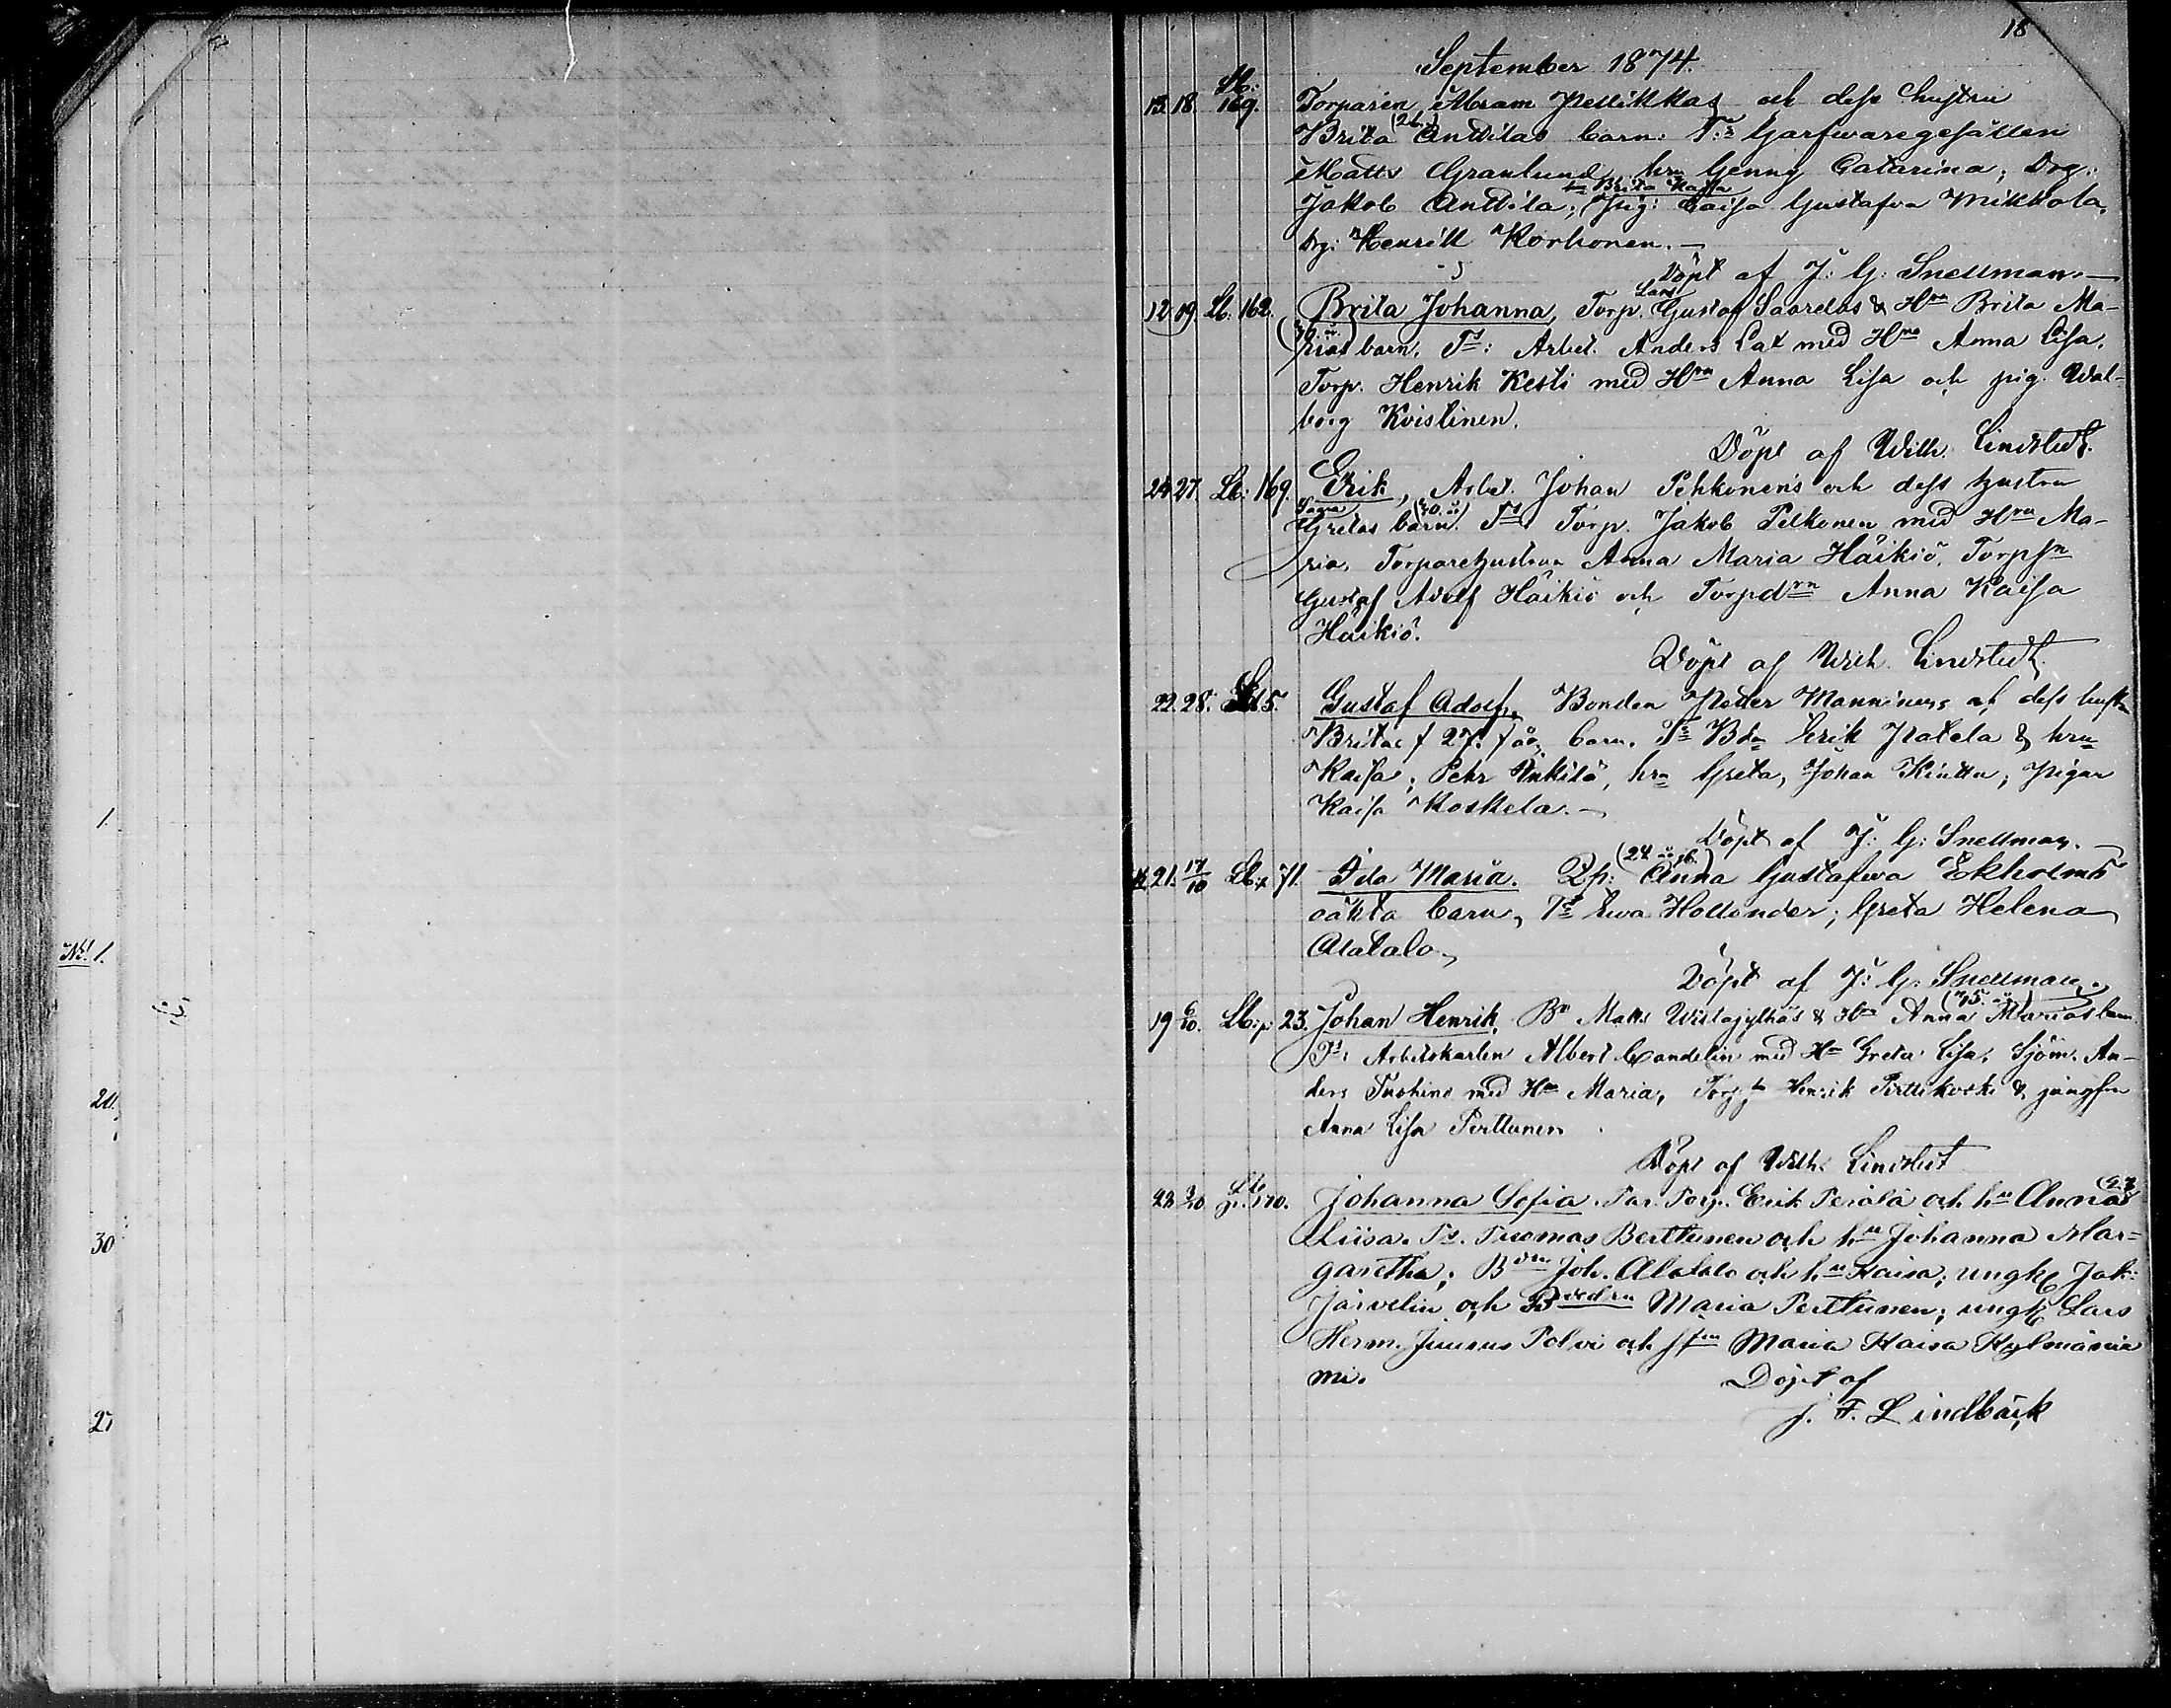 18
September 1874.
13. 18. Lb: 169. Torparen Abram Pellikkas och dess hustru
Brita (26.) Anttilas barn. T:s Garfvaregesällen
Matts Granlund, hru Genny Catarina; Drg:
Jakob Anttila; Brita Kajsa pig: Caisa Gustafva Mikkola,
drg: Henrik Korhonen. —
Döpt af J: G: Snellman. —
12. 19. Lb: 162. Brita Johanna, Torp. Lars Gustaf Saarelas & Hru Brita Ma-
rias barn. Ts: Arbet. Anders Lax med Hru Anna Lisa,
Torp. Henrik Kesti med Hru Anna Lisa och pig. Wal-
borg Kvistinen.
Döpt af Wilh. Lindstedt.
24 27. Lb: 169. Erik, Arbet. Johan Pehkonens och dess hustru
Gretas barn. (40. år) Ts Torp. Jakob Pelkonen med Hru Ma-
ria, Torparehustrun Anna Maria Häikiö, Torpsn
Gustaf Adolf Häikiö och Torpdrn Anna Kaisa
Häikiö.
Döpt af Wilh. Lindstedt.
22. 28. 5. Gustaf Adolf, Bonden Petter Manninens och dess hustru
Britas f 27. f år, barn. Ts Bdn Erik Patela & hru
Kaisa; Pehr Inkilä, hru Greta, Johan Kinttu; Pigan
Kaisa Koskela. —
Döpt af J: G: Snellman. —
21. 17/10 Lb: p 71. Ida Maria. Qp: Anna (24 år g.) Gustafva Ekholms
oäkta barn, Ts Ewa Hollender; Greta Helena
Alatalo.
Döpt af J: G: Snellman.
19 6/10. Lb: p: 23. Johan Henrik, Bn Matts Wiitajylhäs & Hru Anna Marias barn
Ts: Arbetskarlen Albert Candelin med Hru Greta Lisa, Sjöm. An-
ders Tuohino med Hru Maria, Henrik Pirttikoski & jungfrun
Anna Lisa Perttunen.
Döpt af Wilh. Lindstedt
22 3/10. Lb p. 170. Johanna Sofia. Par. Torp. Erik Perälä och hu Anna
Liisa. Ts. Tuomas Berttunen och hu Johanna Mar-
garetha; Bdn Joh. Alatalo och hu Kaisa; ungk. Jak:
Järvelin och Maria Perttunen; ungk. Lars
Herm. Junnus Polvi och Maria Kaisa Kylmänie
mi.
Döpt af
J. F. Lindbäck
1.
N:o 1.
20.
30
27